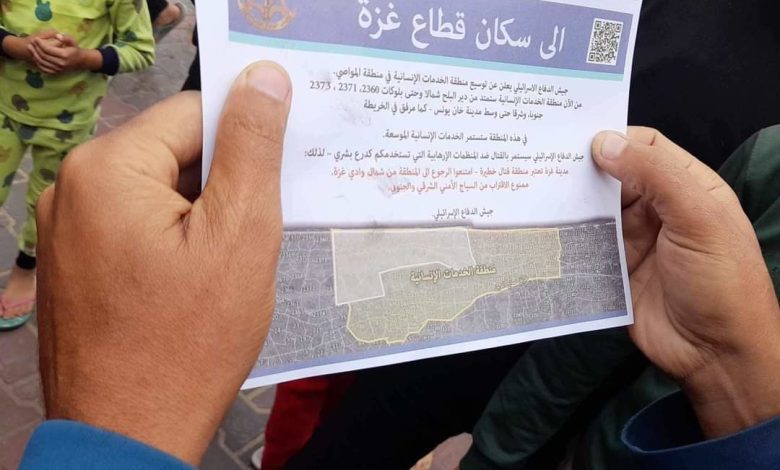 الى سكان قطاع غزة
جيش الدفاع الاسرائيلي يعلن عن توسيع منطقة الخدمات الإنسانية في منطقة المواصي.
من الآن منطقة الخدمات الإنسانية ستمتد من دير البلح شمالا وحتى بلوكات 2360، 2371 ، 2373
جنوبا، وشرقا حتى وسط مدينة خان يونس - كما مرفق في الخريطة
في هذه المنطقة ستستمر الخدمات الإنسانية الموسعة.
جيش الدفاع الإسرائيلي سيستمر بالقتال ضد المنظمات الإرهابية التي تستخدمكم كدرع بشري - لذلك:
مدينة غزة تعتبر منطقة قتال خطيرة - امتنعوا الرجوع الى المنطقة من شمال وادي غزة.
ممنوع الاقتراب من السياج الأمني الشرقي والجنوبي.
جيش الدفاع الإسرائيلي.
منطقة الخدمات الإنسانية